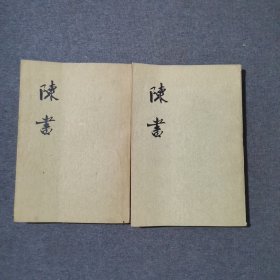 陳書
陳書